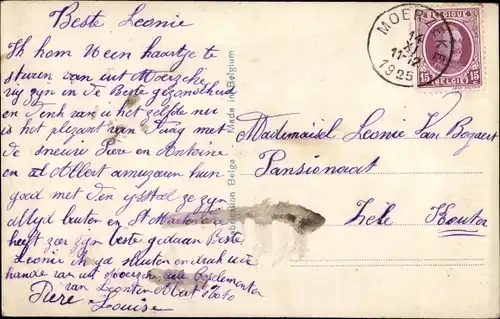 Beste Leonie
Ik kom U een kaartje te
sturen van uit Moerzeke
wij zijn in de Beste gezondheid
en denk van u het zelfde nu
is het plezant van Daag met
de sneuw Piere en Antoine
en Albert amuzeren hun
goed met den ijsstoel ze zijn
altyd buiten en St Marten
heeft zeer zyn beste gedaan Beste
Leonie ik ga sluiten en druk uw
handje van uit Moerzeke
van Leonten Albert
Piere Louise
Made in Belgium
Belge
MOERZEKE
14
XI
11-12
1925
BELGIQUE
15 BELGIE 15
Mademaisel Leonie Van Bogaert
Pansionaat
Zele Kouter